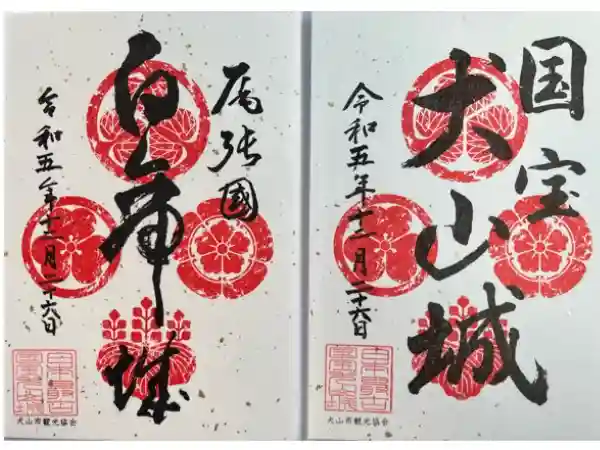 尾張國
白帝城
令和五年十二月二十六日
犬山市観光協会
国宝
犬山城
令和五年十二月二十六日
犬山市観光協会